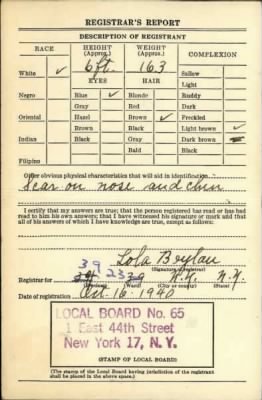 REGISTRAR'S REPORT
DESCRIPTION OF REGISTRANT
RACE HEIGHT (Approx.) WEIGHT (Approx.) COMPLEXION
White ✓ 6 ft. 163 Sallow
EYES HAIR Light
Negro Blue ✓ Blonde Ruddy
Gray Red Dark
Oriental Hazel Brown ✓ Freckled
Brown Black Light brown ✓
Indian Black Gray Dark brown
Bald Black
Filipino
Other obvious physical characteristics that will aid in identification
Scar on nose and chin
I certify that my answers are true; that the person registered has read or has had
read to him his own answers; that I have witnessed his signature or mark and that
all of his answers of which I have knowledge are true, except as follows:
Lola
(Signature of registrar)
Registrar for 39 2339 N.Y. N.Y.
(Precinct) (Ward) (City or county) (State)
Date of registration Oct. 16 - 1940
LOCAL BOARD No. 65
1 East 44th Street
New York 17, N. Y.
(STAMP OF LOCAL BOARD)
(The stamp of the Local Board having jurisdiction of the registrant
shall be placed in the above space.)